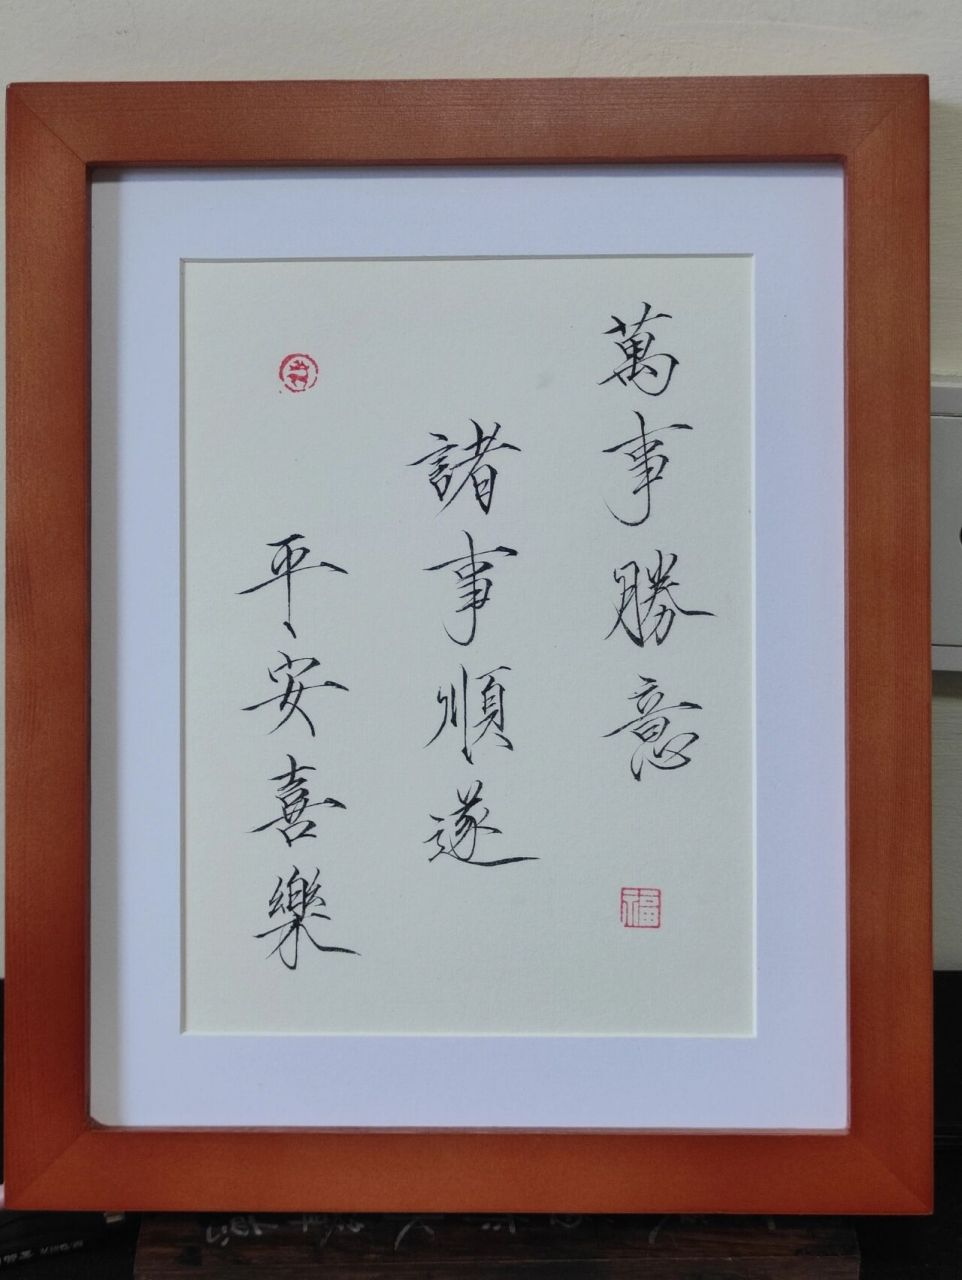 萬事勝意
諸事順遂
平安喜樂
福